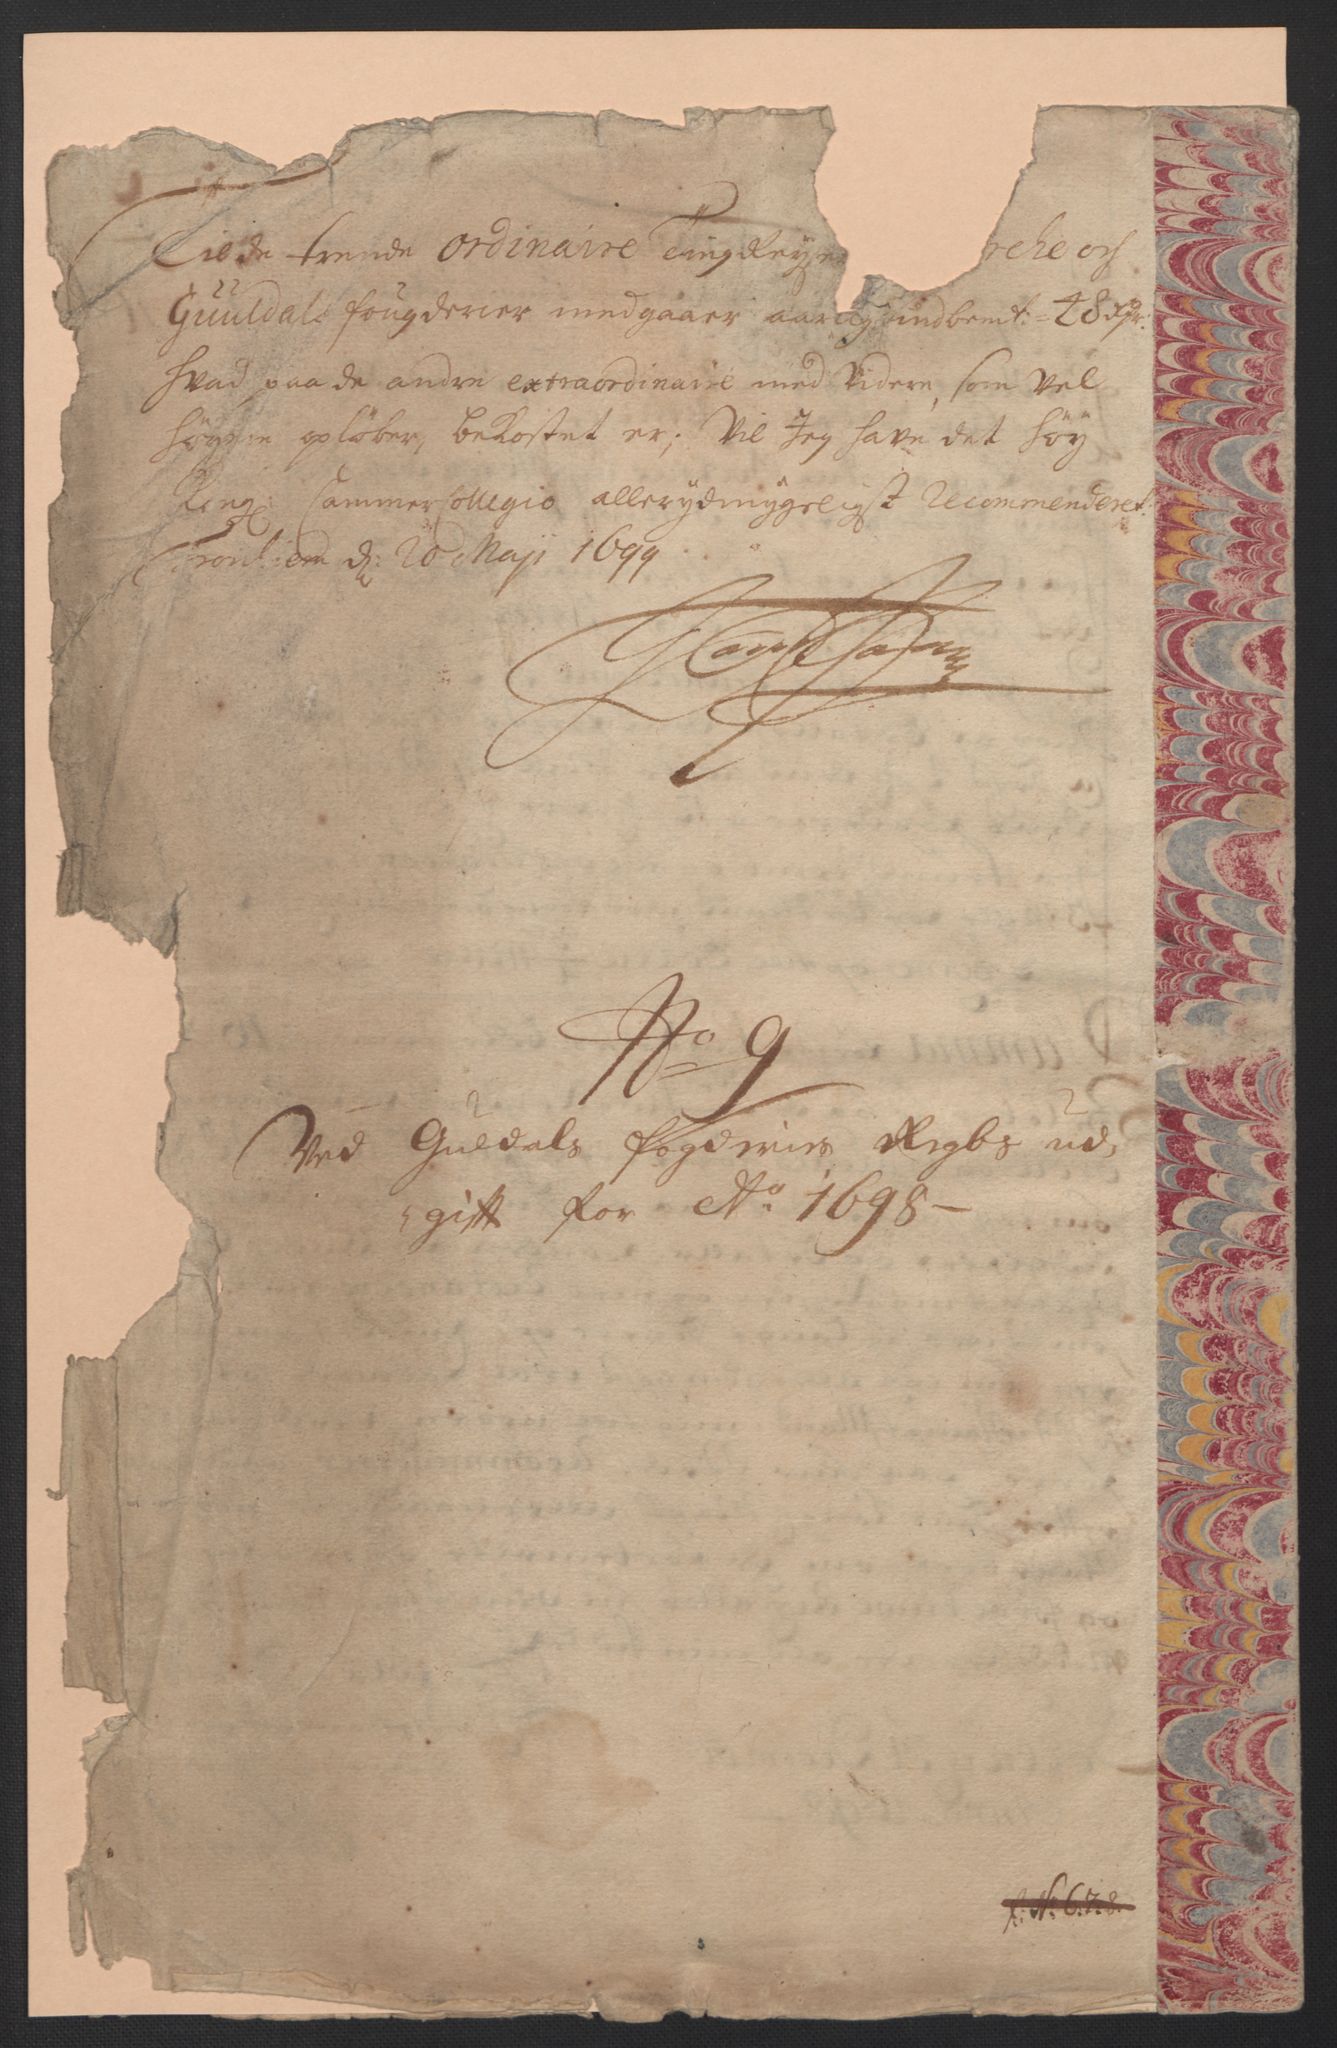 Til de trende ordinaire TingReyser rche och
Guuldals fougderier medgaaer aarlig indbemt: 48 Rdr:
hvad paa de andre extraordinaire med Videre, som Vel
höyere opløber, bekostet er; Vil Jeg have det höy
Kongl: CammerCollegio allerydmygeligst Recommenderet.
Trontiem d: 20 Maji 1699
No 9
Ved Guldals fogderies Regbs ud,
gift for Ao 1698 –
No: 6.7.8.